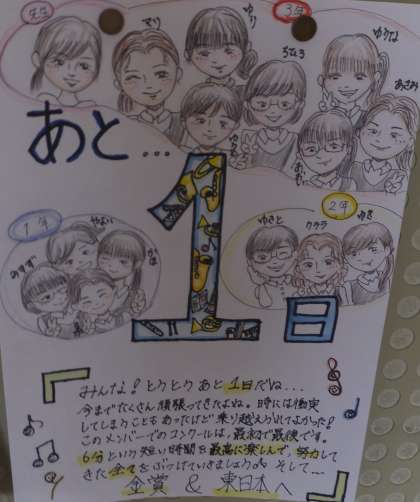 先生
まり
ゆり
3年
ちひろ
ゆうな
あさみ
あと...
1日
1年
やよい
みすず
2年
ゆきと
クララ
ゆき
みんな！とうとうあと1日だね...
今までたくさん頑張ってきたよね。時には衝突
してしまうこともあったけど乗り越えられてよかった！
このメンバーでのコンクールは、最初で最後です。
6分という短い時間を最高に楽しんで、努力して
きた全てをぶつけていきましょう そして...
金賞 & 東日本へ